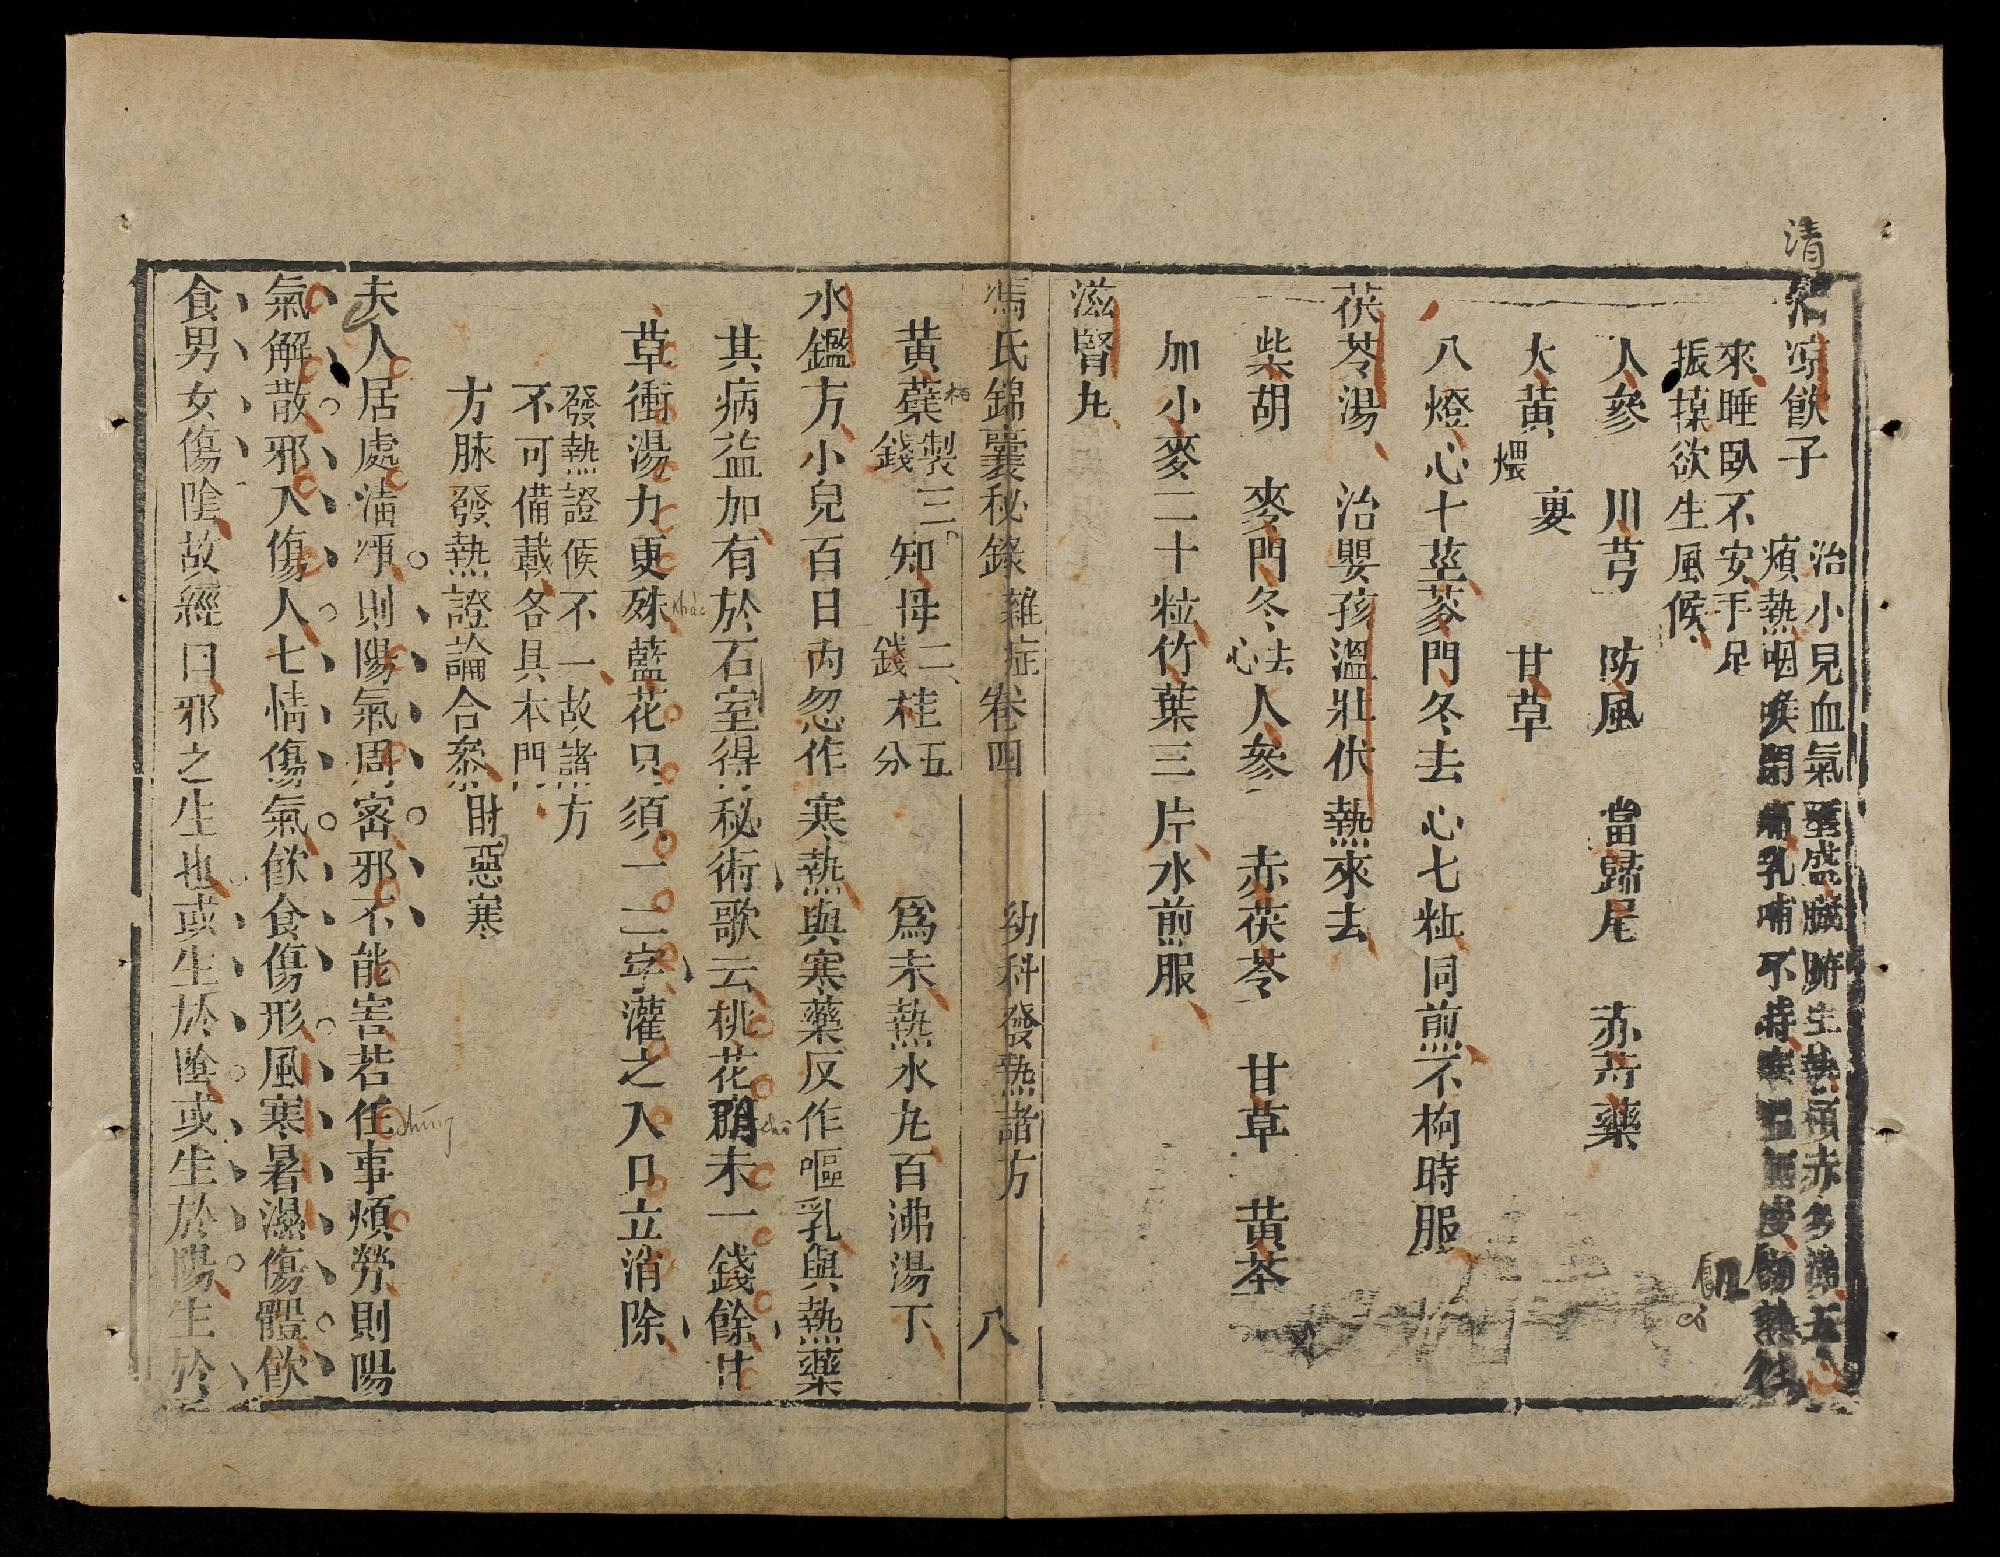 清涼飲子
治小兒血氣壅盛臟腑生熱頰赤多渴五心
煩熱咽喉閉痛乳哺不時寒溫無度傷熱往
來睡臥不安手足
振掉欲生風候
人參 川芎 防風 當歸尾 赤芍藥
大黄煨裏 甘草
八燈心十莖麥門冬去心七粒同煎不枸時服
茯苓湯 治嬰孩溫壯伏熱來去
柴胡 麥門冬去心 人參 赤茯苓 甘草 黄芩
加小麥二十粒竹葉三片水煎服
滋腎丸
馮氏錦囊秘錄 雜症卷四 幼科發熱諸方 八
黄蘗製三錢 知母二錢 桂五分 爲末熱水丸百沸湯下
柏
水鑑方小兒百日內忽作寒熱與寒藥反作嘔乳與熱藥
其病益加有於石室得秘術歌云桃花 末一錢餘甘
chō
草衝湯力更殊藍花只須一二字灌之入口立消除
khác
發熱證候不一故諸方
不可備載各具本門
方脉發熱證論合參附惡寒
夫人居處清淨則陽氣周密邪不能害若任事煩勞則陽
chúng
氣解散邪入傷人七情傷氣飲食傷形風寒暑濕傷體飲
食男女傷陰故經曰邪之生也或生於陰或生於陽生於